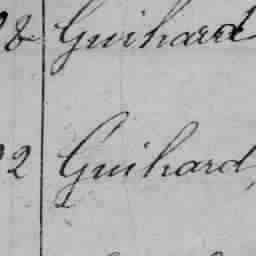 8 Guihard
2 Guihard,